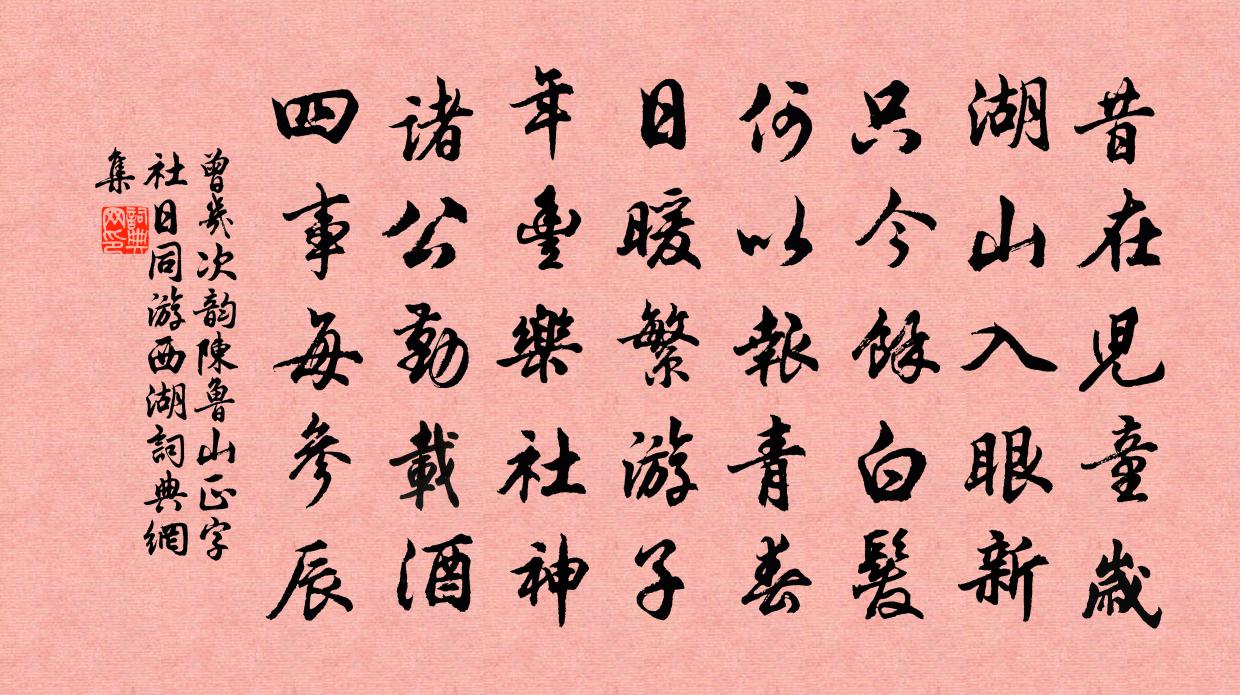 昔在児童歲
湖山入眼新
只今餘白髮
何以報青春
日暖繁游子
年豊樂社神
諸公勤載酒
四事每參辰
曾幾次韵陳魯山正字
社日同游西湖詞典網
集
詞典网印